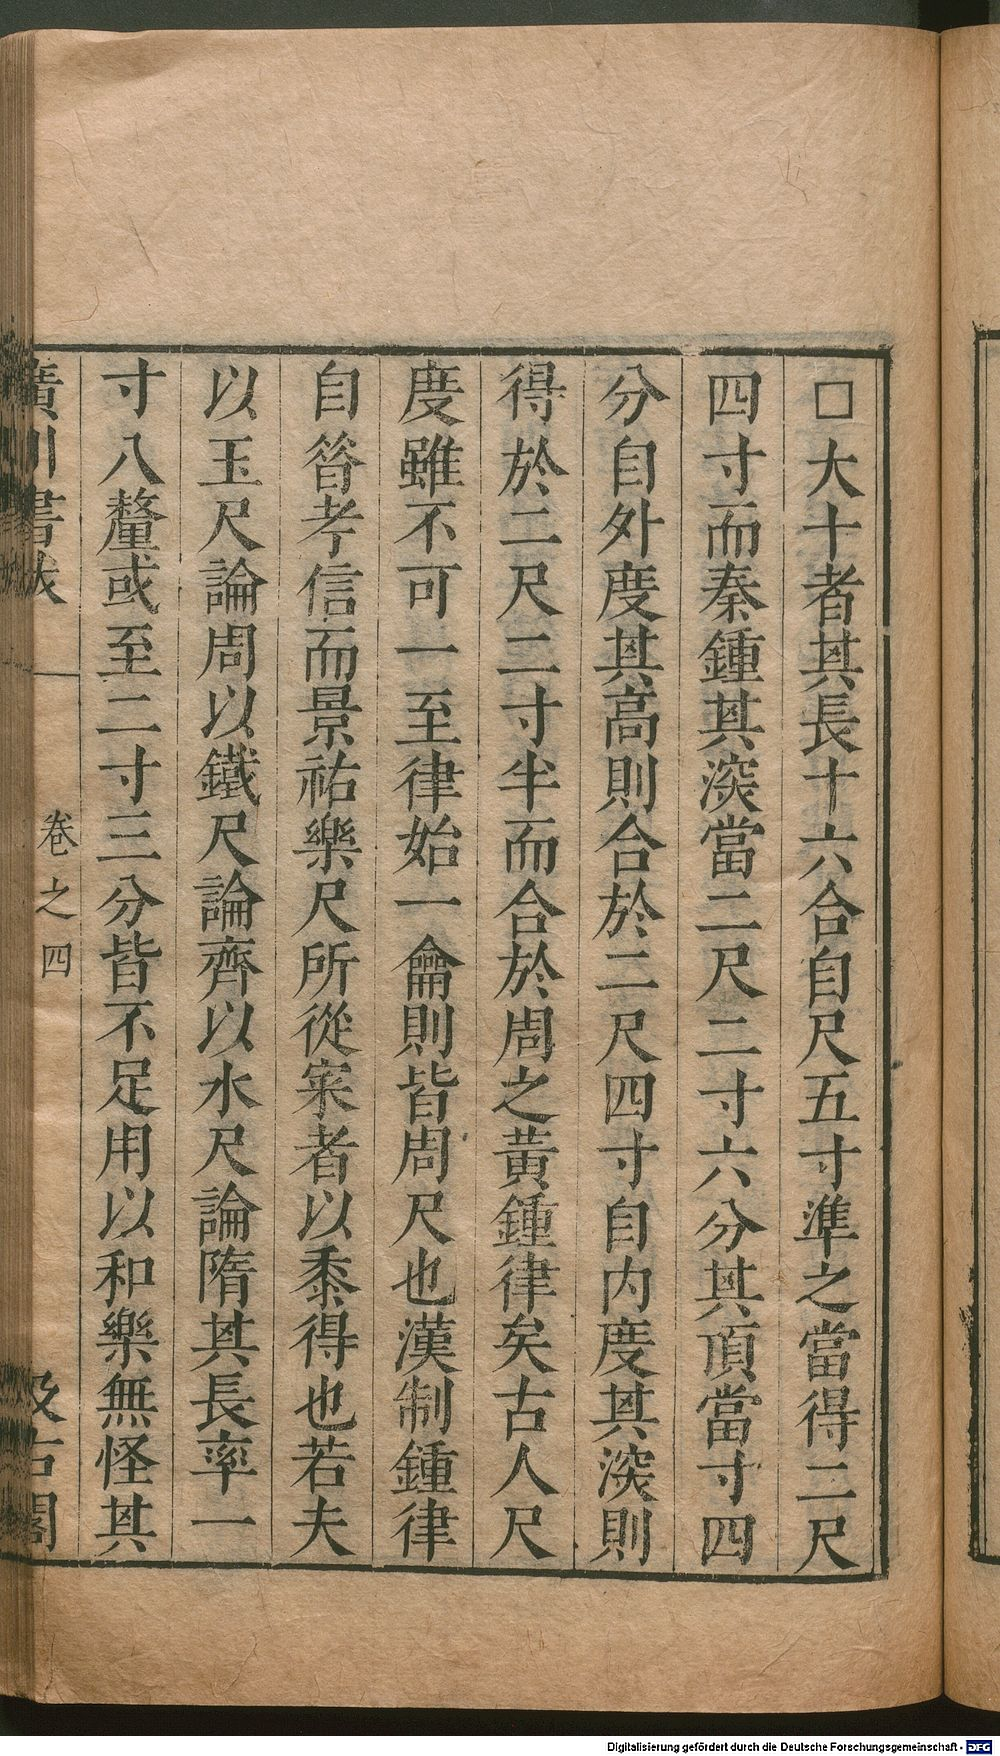 □大十者其長十六合自尺五寸準之當得二尺
四寸而秦鍾其深當二尺二寸六分其頂當寸四
分自外度其高則合於二尺四寸自内度其深則
得於二尺二寸半而合於周之黃鍾律矣古人尺
度雖不可一至律始一龠則皆周尺也漢制鍾律
自筭考信而景祐樂尺所從寀者以黍得也若夫
以玉尺論周以鐵尺論齊以水尺論隋其長率一
寸八釐或至二寸三分皆不足用以和樂無怪其
廣川書跋 卷之四 汲古閣
Digitalisierung gefördert durch die Deutsche Forschungsgemeinschaft - DFG